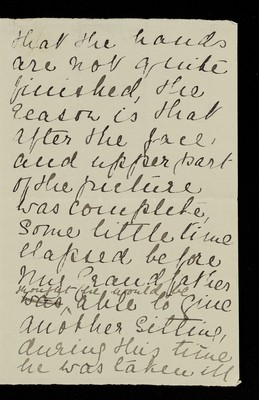 that the hands
are not quite
finished, the
reason is that
after the face
and upper part
of the picture
was complete,
some little time
elapsed before
my Grandfather
thought he would be
was able to give
another sitting,
during this time
he was taken ill